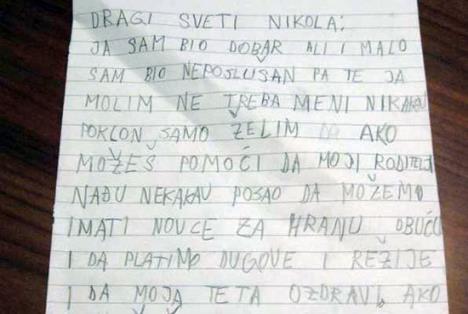 DRAGI SVETI NIKOLA:
JA SAM BIO DOBAR ALI I MALO
SAM BIO NEPOSLUSAN PA TE JA
MOLIM NE TREBA MENI NIKAKAV
POKLON, SAMO ŽELIM DA AKO
MOŽEŠ POMOĆI DA MOJI RODITELJI
NAĐU NEKAKAV POSAO DA MOŽEMO
IMATI NOVCE ZA HRANU, OBUĆU
I DA PLATIMO DUGOVE I REŽIJE
I DA MOJA TETA OZDRAVI. AKO